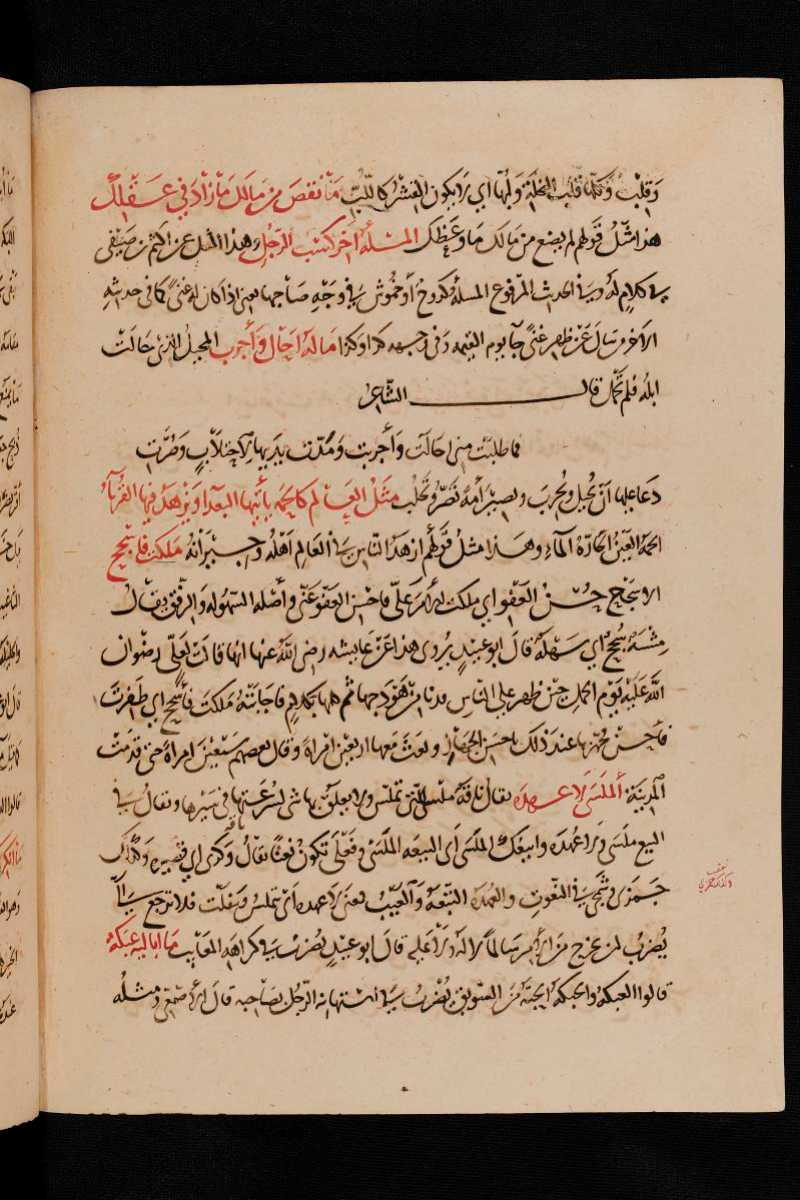 وقلب وكما قلب النخلة ولبها اي لا يكون القشر كاللب ما نقص من مالك ما زاد في عقلك
هذا مثل قولهم لم يضع من مالك ما وعظك المسئلة اخر كسب الرجل هذا المثل عن اكثم بن صيفي
في كلام له وفي الحديث المرفوع المسئلة كدوح او خموش في وجه صاحبها يعني اذا كان له غنى كما في حديثه
الاخر من سال عن ظهر غنى جا يوم القيمة وفي وجهه كذا وكذا ماله احال واجرب المحيل الذي حالت
ابله فلم تحمل قال الشاعر
فما طلبت مني احالت واجربت ومدت يديها لاحتلاب وصرت
دعا عليها ان تحيل وتجرب وتصير امة تصر وتحلب مثل العالم كالحمة ياتيها البعدا ويزهد فيها القربا
الحمة العين الحارة الماء وهذا مثل قولهم ازهد الناس في العالم اهله وجيرانه ملكت فاسجح
الاسجاح حسن العفو اي ملكت الامر علي فاحسن العفو عني واصله السهولة والرفق يقال
مشية سجح اي سهلة قال ابو عبيد يروى هذا عن عايشه رضي الله عنها انها قالت لعلي رضوان
الله عليه يوم الجمل حين ظهر على الناس فدنا من هودجها ثم كلمها بكلام فاجابته ملكت فاسجح اي ظفرت
فاحسن فجهزها عند ذلك باحسن الجهاز وبعث معها اربعين امراة وقال بعضهم سبعين امراة حتى قدمت
المدينة الملسى لا عهدة يقال ناقة ملسى للتي تملس ولا يعلق بها شي لسرعتها في سيرها ويقال في
البيع ملسى ولا عهدة وابيعك الملسى اي البيعة الملسى وفعلى تكون نعتا يقال ناقة وكرى اي قصيرة وكذلك
جمزى وشمجى في النعوت والعهدة التبعة والعيب يعني لا عهدة اي تملس وتفلت فلا ترجع الي
يضرب لمن يخرج من الامر سالما لا له ولا عليه قال ابو عبيد يضرب في كراهة المعايب ما اباليه عبكة
قالوا العبكة والحبكة الحبة من السويق يضرب في استهانة الرجل بصاحبه قال الاصمعي ومثله